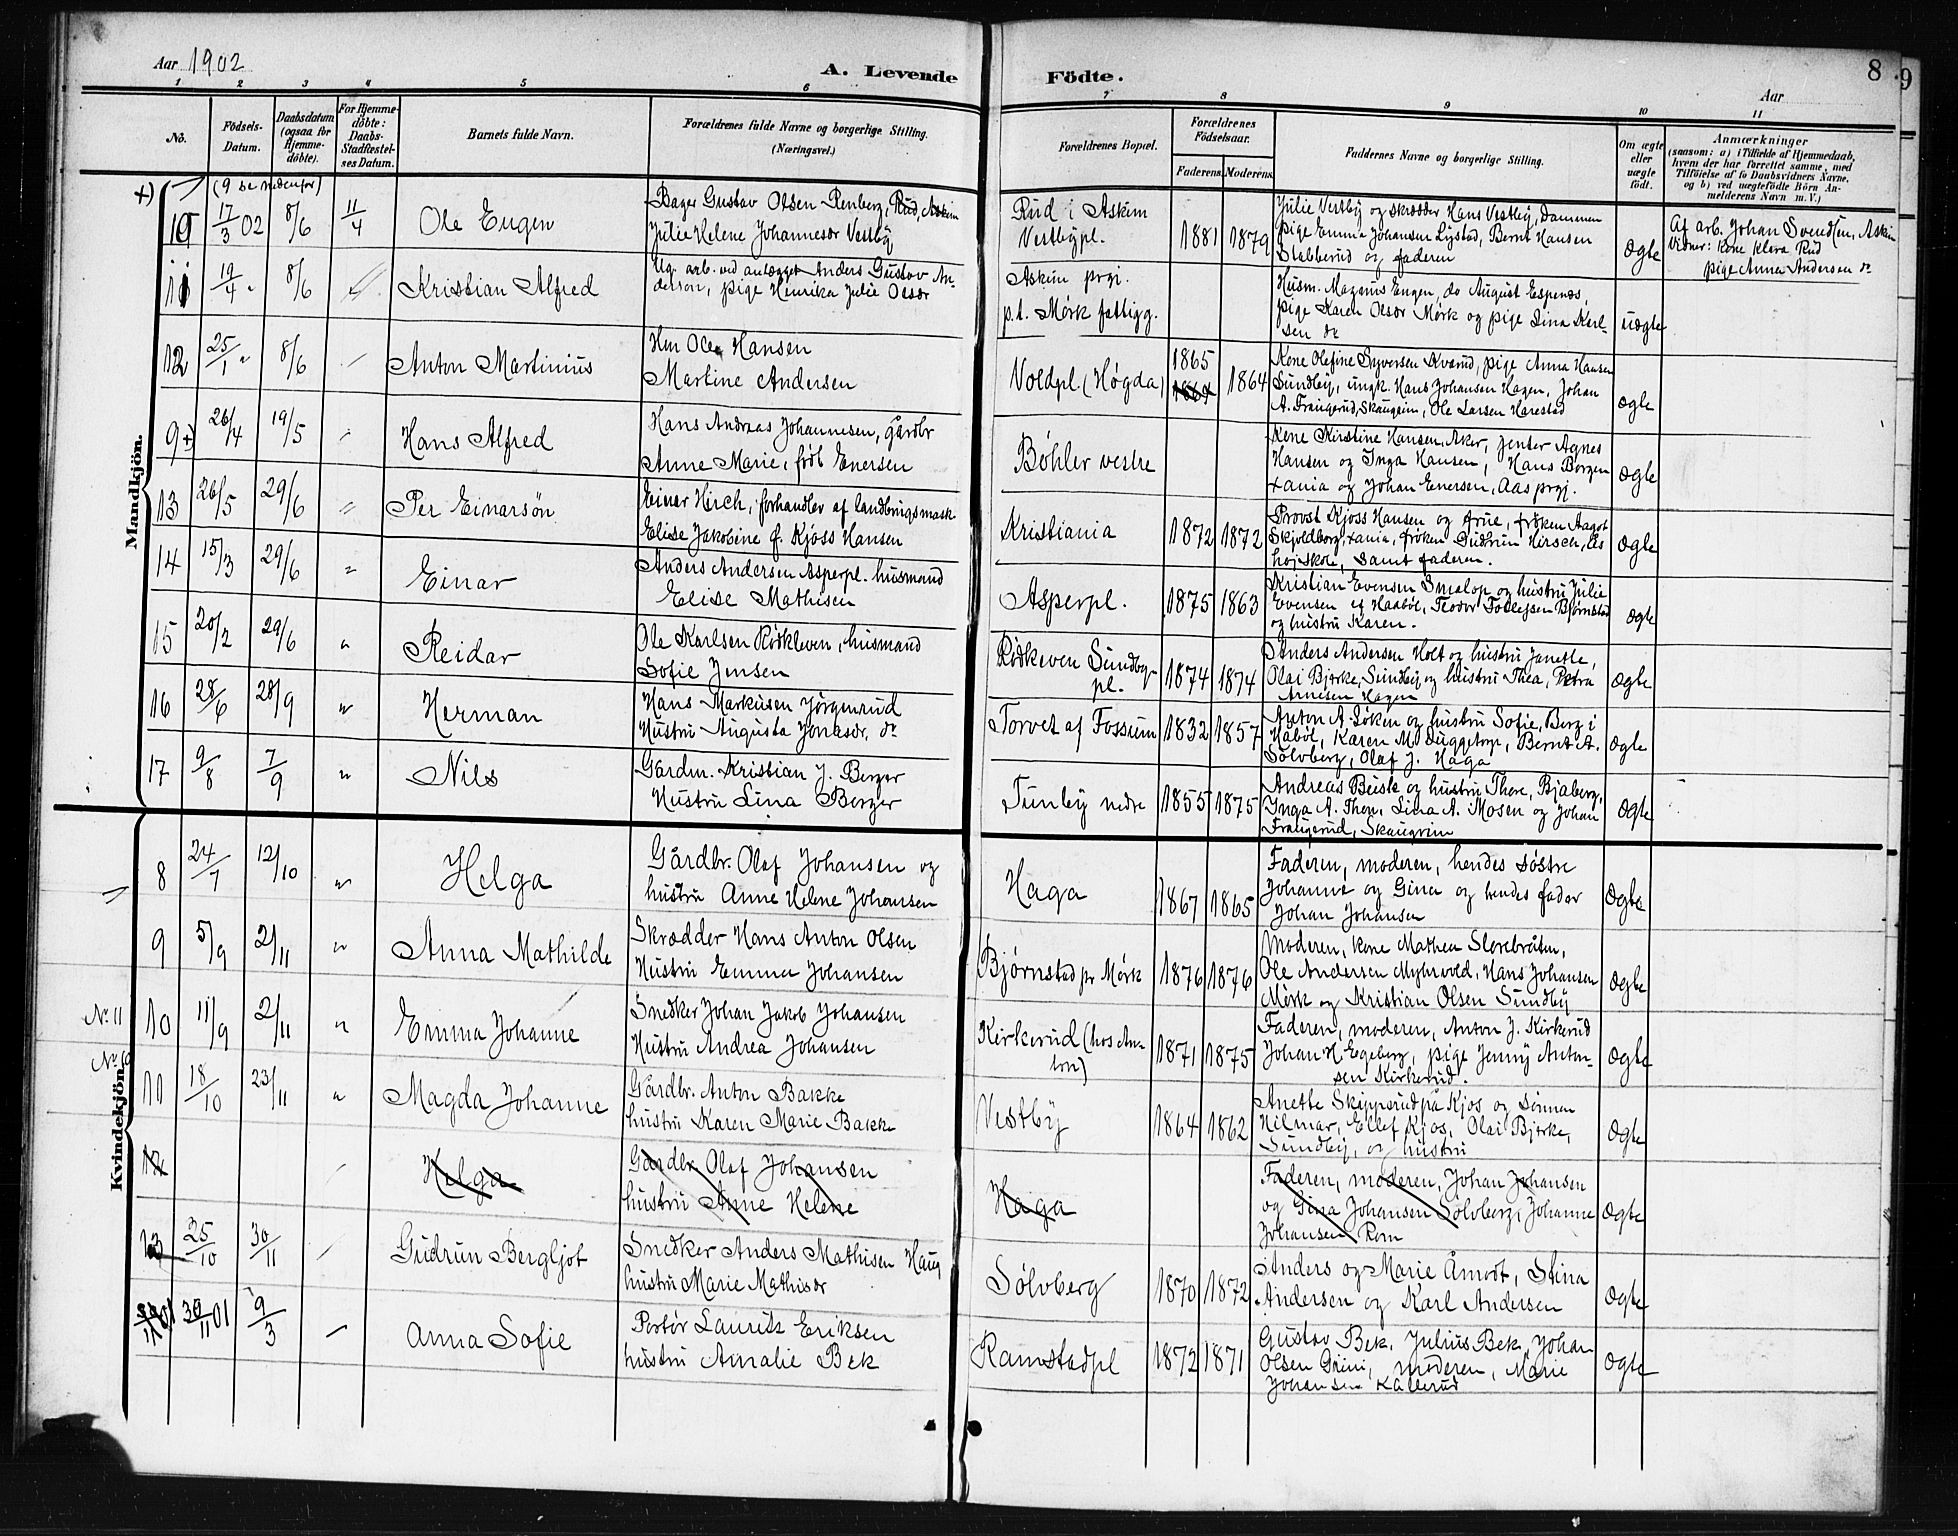 Aar 1902
A. Levende Födte.
8
9
Aar
1 2 3 4 5 6 7 8 9 10 11
No.
Födsels-Datum.
Daabsdatum (ogsaa for Hjemme-döbte).
For Hjemme-döbte: Daabs-Stadfæstelses Datum.
Barnets fulde Navn.
Forældrenes fulde Navne og borgerlige Stilling. (Næringsvei.)
Forældrenes Bopæl.
Forældrenes Födselsaar.
Faderens. Moderens.
Faddernes Navne og borgerlige Stilling.
Om ægte eller uægte födt.
Anmærkninger
(saasom: a) i Tilfælde af Hjemmedaab,
hvem der har forrettet samme, med
Tilföielse af to Daabsvidners Navne,
og b) ved uægtefödte Börn An-
melderens Navn m. V.)
Mandkjön.
+) (9 se nedenfor)
10 17/3 02 8/6 11/4 Ole Eugen
Bager Gustav Olsen Renberg, Rud, Askim
Julie Helene Johannesdr Vestby
Rud i Askim
Vestbypl.
1881 1879
Julie Vestby og skrædder Hans Vestby, Dammen
pige Emma Johansen Lystad, Bernt Hansen
Stabberud og faderen
ægte
Af arb. Johan Svendsen, Askim
vidner: Kone Klara Rud
pige Anna Andersen do
11 19/4 " 8/6 Kristian Alfred
Ug. arb. ved anlægget Anders Gustav An-
derson, pige Henrika Julie Olsdr
Askim prgj.
p.t. Mørk fattigg.
Husm. Magnus Engen, do August Espenæs,
pige Karen Olsdr Mørk og pige Lina Karl-
sen do
uægte
12 25/1 " 8/6 Anton Martinius
Hm Ole Hansen
Martine Andersen
Voldpl (Høgda)
1865 1864
Kone Olefine Syversen Kvarud, pige Anna Hansen
Sundby, ungk. Hans Johansen Hagen, Johan
A. Fraugerud, Skaugeim, Ole Larsen Harestad
ægte
9+) 26/4 19/5 " Hans Alfred
Hans Andreas Johannesen, Gårdbr
Anne Marie, født Enersen
Bøhler vestre
Kone Kirstine Hansen, Aker, jenter Agnes
Hansen og Inga Hansen, Hans Borgen
xania og Johan Enersen, Aas prgj.
ægte
13 26/5 29/6 " Per Einarsön
Einar Hirch, forhandler af landbrugsmask
Elise Jakobine f. Kjøss Hansen
Kristiania
1872 1872
Provst Kjøss Hansen og frue, frøken Aagot
Skjoldborg, xania, frøken Gudrun Hirsch, Ås
højskole, samt faderen.
ægte
14 15/3 29/6 " Einar
Anders Andersen Asperpl. husmand
Elise Mathisen
Asperpl.
1875 1863
Kristian Evensen Smalop og hustru Julie
Evensen af Haabøl, Teodor Tollefsen Bjørnstad
og hustru Karen.
ægte
15 20/2 29/6 " Reidar
Ole Karlsen Rödkleven, husmand
Sofie Jensen
Rødkleven Sundby-
pl.
1874 1874
Anders Andersen Holt og hustru Janette,
Olai Bjerke, Sundby og hustru Thea, Petra
Arnesen Hagen
ægte
16 28/6 28/9 " Herman
Hans Markusen Jørgenrud
Hustru Augusta Jonasdr, do
Torvet af Fossum
1832 1857
Anton A. Løken og hustru Sofie, Berg i
Håbøl, Karen M. Duggetorp, Bernt A.
Sölvberg, Olaf J. Haga
ægte
17 9/8 7/9 " Nils
Gårdm. Kristian J. Berger
Hustru Lina Berger
Tunby nedre
1855 1875
Andreas Beisk og hustru Thore, Bjaberg,
Inga A. Thon, Lina A. Mosen og Johan
Fraugerud, Skaugeim
ægte
Kvindekjön.
8 24/7 12/10 " Helga
Gårdbr. Olaf Johansen og
hustru Anne Helene Johansen
Haga
1867 1865
Faderen, moderen, hendes søstre
Johanne og Gina og hendes fader
Johan Johansen
ægte
9 5/9 2/11 " Anna Mathilde
Skrædder Hans Anton Olsen
Hustru Emma Johansen
Bjørnstad pr Mørk
1876 1876
Moderen, kone Mathea Slorebråten,
Ole Andersen Myhrvold, Hans Johansen
Mørk og Kristian Olsen Sundby
ægte
No 11
10 11/9 2/11 " Emma Johanne
Snedker Johan Jakob Johansen
Hustru Andrea Johansen
Kirkerud (hos An-
ton)
1871 1875
Faderen, moderen, Anton J. Kirkerud
Johan H. Egeberg, pige Jenny Anton-
sen Kirkerud.
ægte
No 10
11 18/10 23/11 " Magda Johanne
Gårdbr. Anton Bakke
hustru Karen Marie Bakke
Vestby
1864 1862
Anette Skippsrud på Kjos og sönnen
Hilmar, Ellef Kjos, Olai Bjerke,
Sundby, og hustru
ægte
12 Helga
Gårdbr Olaf Johansen
hustru Anne Helene
Haga
Faderen, moderen, Johan Johansen
og Gina Johansen Sölvberg, Johanne
Johansen Rom
ægte
13 25/10 30/11 Gudrun Bergljot
Snedker Anders Mathisen Haug
hustru Marie Mathisdr
Sölvberg
1870 1872
Anders og Marie Åmodt, Stina
Andersen og Karl Andersen
ægte
30/11 01 9/3 Anna Sofie
Portør Laurits Eriksen
hustru Amalie Bek
Ramstadpl
1872 1871
Gustav Bek, Julius Bek, Johan
Olsen Grini, moderen, Marie
Johansen Kallerud
ægte